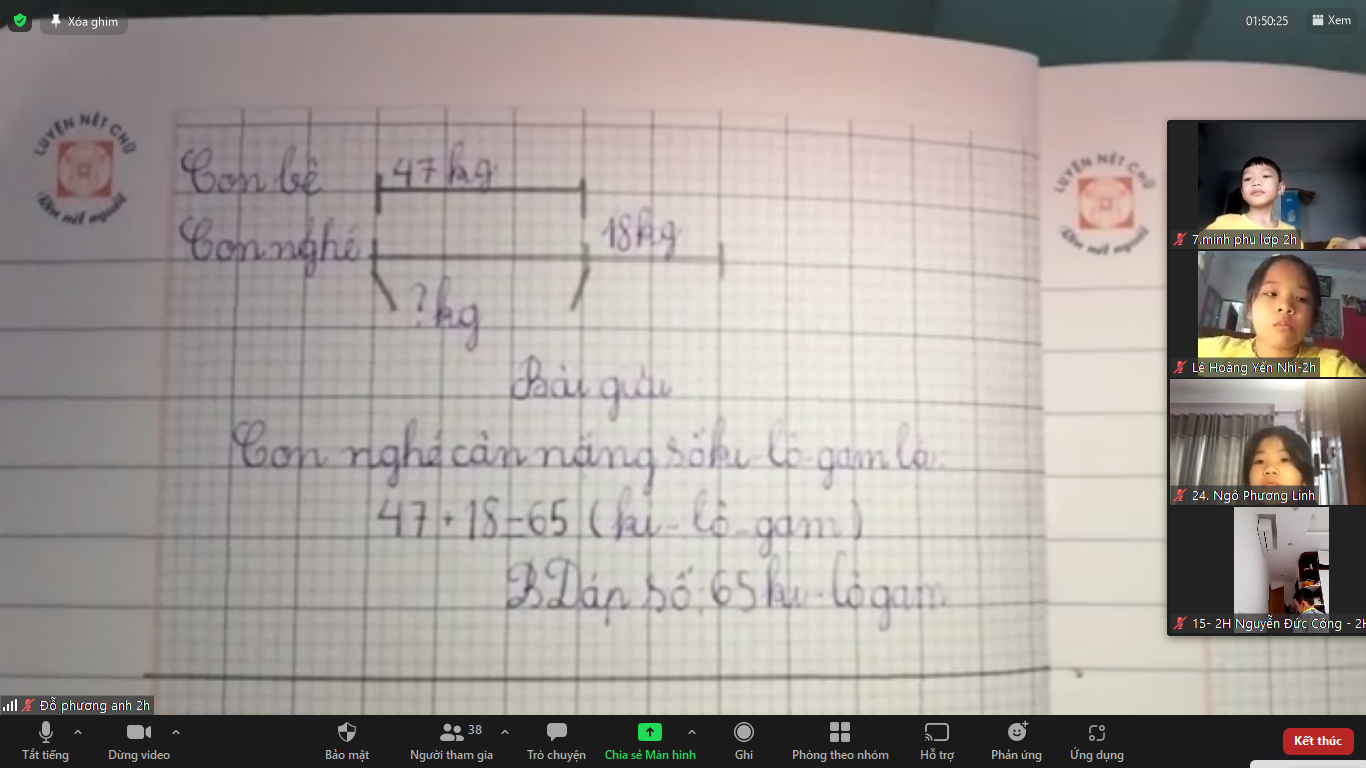 Xóa ghim
01:50:25
Xem
LUYỆN NÉT CHỮ
Rèn nết người
LUYỆN NÉT CHỮ
Rèn nết người
Con bê 47 kg
Con nghé 18kg
? kg
Bài giải
Con nghé cân nặng số ki-lô-gam là:
47 + 18 = 65 (ki-lô-gam)
Đáp số: 65 ki-lô gam
7.minh phú lớp 2h
Lê Hoàng Yến Nhi-2h
24. Ngô Phương Linh
15- 2H Nguyễn Đức Công - 2H
Đỗ phương anh 2h
Tắt tiếng
Dừng video
Bảo mật
Người tham gia
38
Trò chuyện
Chia sẻ Màn hình
Ghi
Phòng theo nhóm
Hỗ trợ
Phản ứng
Ứng dụng
Kết thúc